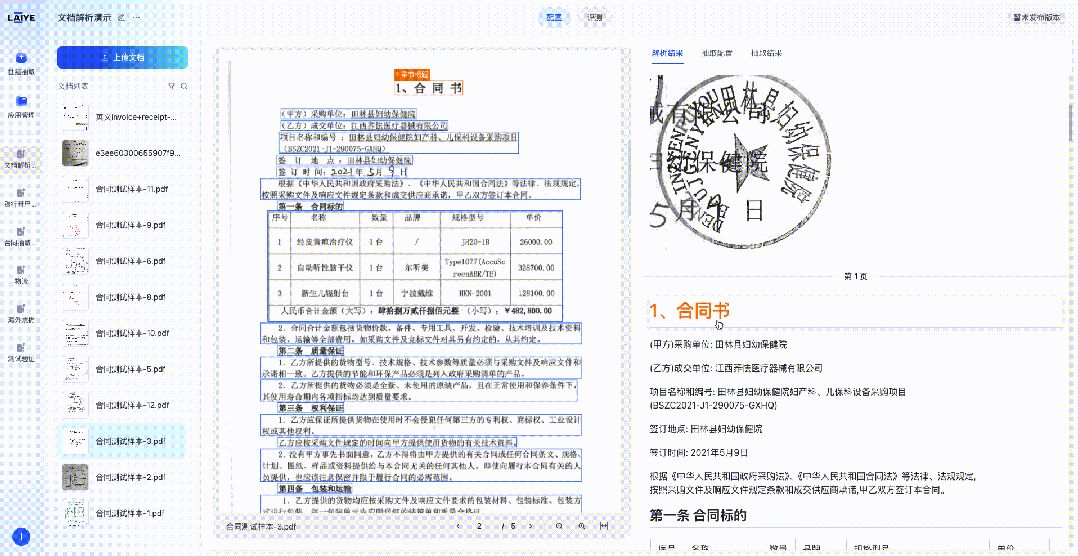 LAIYE
文档解析演示
配置
评测
暂未发布版本
创建抽取
应用管理
文档解析...
合同抽取
物流
海外流程
测试验证
上传文档
文档列表
英文invoice-receipt-...
e3ee60300655907f9...
合同测试样本-11.pdf
合同测试样本-9.pdf
合同测试样本-6.pdf
合同测试样本-8.pdf
合同测试样本-10.pdf
合同测试样本-5.pdf
合同测试样本-12.pdf
合同测试样本-3.pdf
合同测试样本-2.pdf
合同测试样本-1.pdf
章节标题
1、合 同 书
(甲方)采购单位: 田林县妇幼保健院
(乙方)成交单位: 江西乔法医疗器械有限公司
项目名称和编号 : 田林县妇幼保健院妇产科、儿保科设备采购项目
(BSZC2021-J1-290075-GXHQ)
签 订 地 点 : 田林县妇幼保健院
签 订 时 间: 2021 年 5 月 9 日
根据《中华人民共和国政府采购法》、《中华人民共和国合同法》等法律、法规规定,
按照采购文件及响应文件规定条款和成交供应商承诺,甲乙双方签订本合同。
第一条 合同标的
序号 名称 数量 品牌 规格型号 单价
1 经皮黄疸治疗仪 1台 / JH20-1B 26000.00
2 自动听性脑干仪 1台 尔听美 Type1077(AccuScreenABR/TE) 328700.00
3 新生儿辐射台 1台 宁波戴维 HKN-2001 128100.00
人民币合计金额(大写): 肆拾捌万贰仟捌佰元整 (小写): ¥482,800.00
2. 合同合计金额包括货物价款、备件、专用工具、开发、检验、技术培训及技术资料
和包装、运输等全部费用。如采购文件及竞标文件对其另有约定的,从其约定。
第二条 质量保证
1. 乙方所提供的货物型号、技术规格、技术参数等质量必须与采购文件及响应文件和
承诺相一致。乙方提供的节能和环保产品必须是列入政府采购清单的产品。
2. 乙方所提供的货物必须是全新、未使用的原装产品,且在正常使用和保养条件下,
其使用寿命期内各项指标均达到质量要求。
第三条 权利保证
1. 乙方应保证所提供货物在使用时不会侵犯任何第三方的专利权、商标权、工业设计
权或其他权利。
乙方应按采购文件规定的时间向甲方提供使用货物的有关技术资料。
2. 没有甲方事先书面同意,乙方不得将由甲方提供的有关合同或任何合同条文、规格、
计划、图纸、样品或资料提供给与本合同无关的任何其他人,即使向履行本合同有关的人
员提供,也应该注意保密并限于履行合同的必需范围。
第四条 包装和运输
1. 乙方提供的货物均应按采购文件及响应文件要求的包装材料、包装标准、包装方
合同测试样本-3.pdf
2 / 5
解析结果
抽取配置
抽取结果
田林县妇幼保健院
保健院
5月 日
第 1 页
1、合同书
(甲方)采购单位: 田林县妇幼保健院
(乙方)成交单位: 江西乔法医疗器械有限公司
项目名称和编号: 田林县妇幼保健院妇产科、儿保科设备采购项目
(BSZC2021-J1-290075-GXHQ)
签订地点: 田林县妇幼保健院
签订时间: 2021年5月9日
根据《中华人民共和国政府采购法》、《中华人民共和国合同法》等法律、法规规定,
按照采购文件及响应文件规定条款和成交供应商承诺,甲乙双方签订本合同。
第一条 合同标的
序号 名称 数量 品牌 规格型号 单价